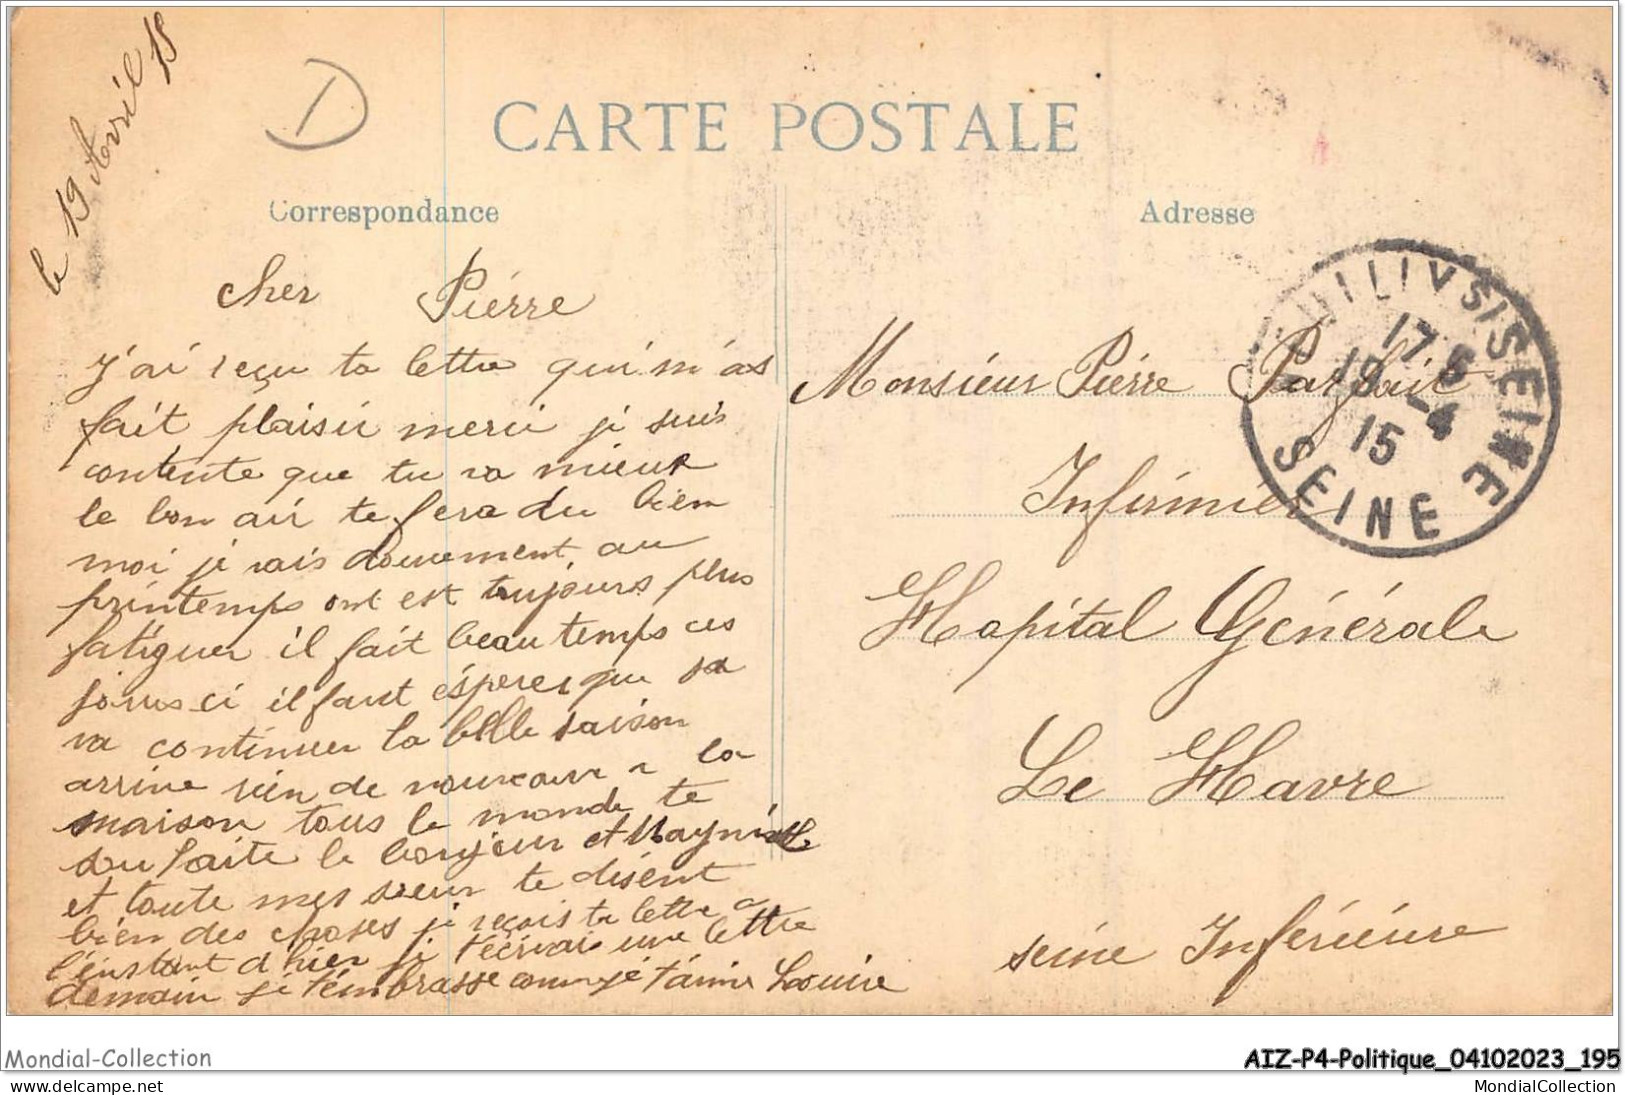 le 19 Avril 15
D
CARTE POSTALE
Correspondance
Adresse
cher Pierre
J'ai reçu ta lettre qui m'as
fait plaisir merci je suis
contente que tu va mieux
le bon air te fera du bien
moi je vais doucement au
printemps ont est toujours plus
fatiguer il fait beau temps ces
jours ci il faut ésperer que sa
va continuer la belle saison
arrive rien de nouveau a la
maison tous le monde te
souhaite le bonjour et
et toute mes sœur te disent
bien des choses je reçois ta lettre a
l'instant d hier je t'écrirai une lettre
demain je t'embrasse comme je t'aime Louise
Monsieur Pierre Parfait
Infirmier
Hopital Générale
Le Havre
seine Inférieure
SEINE
17 5
19 -4
15
Mondial-Collection
delcampe.net
AIZ-P4-Politique_04102023_195
MondialCollection